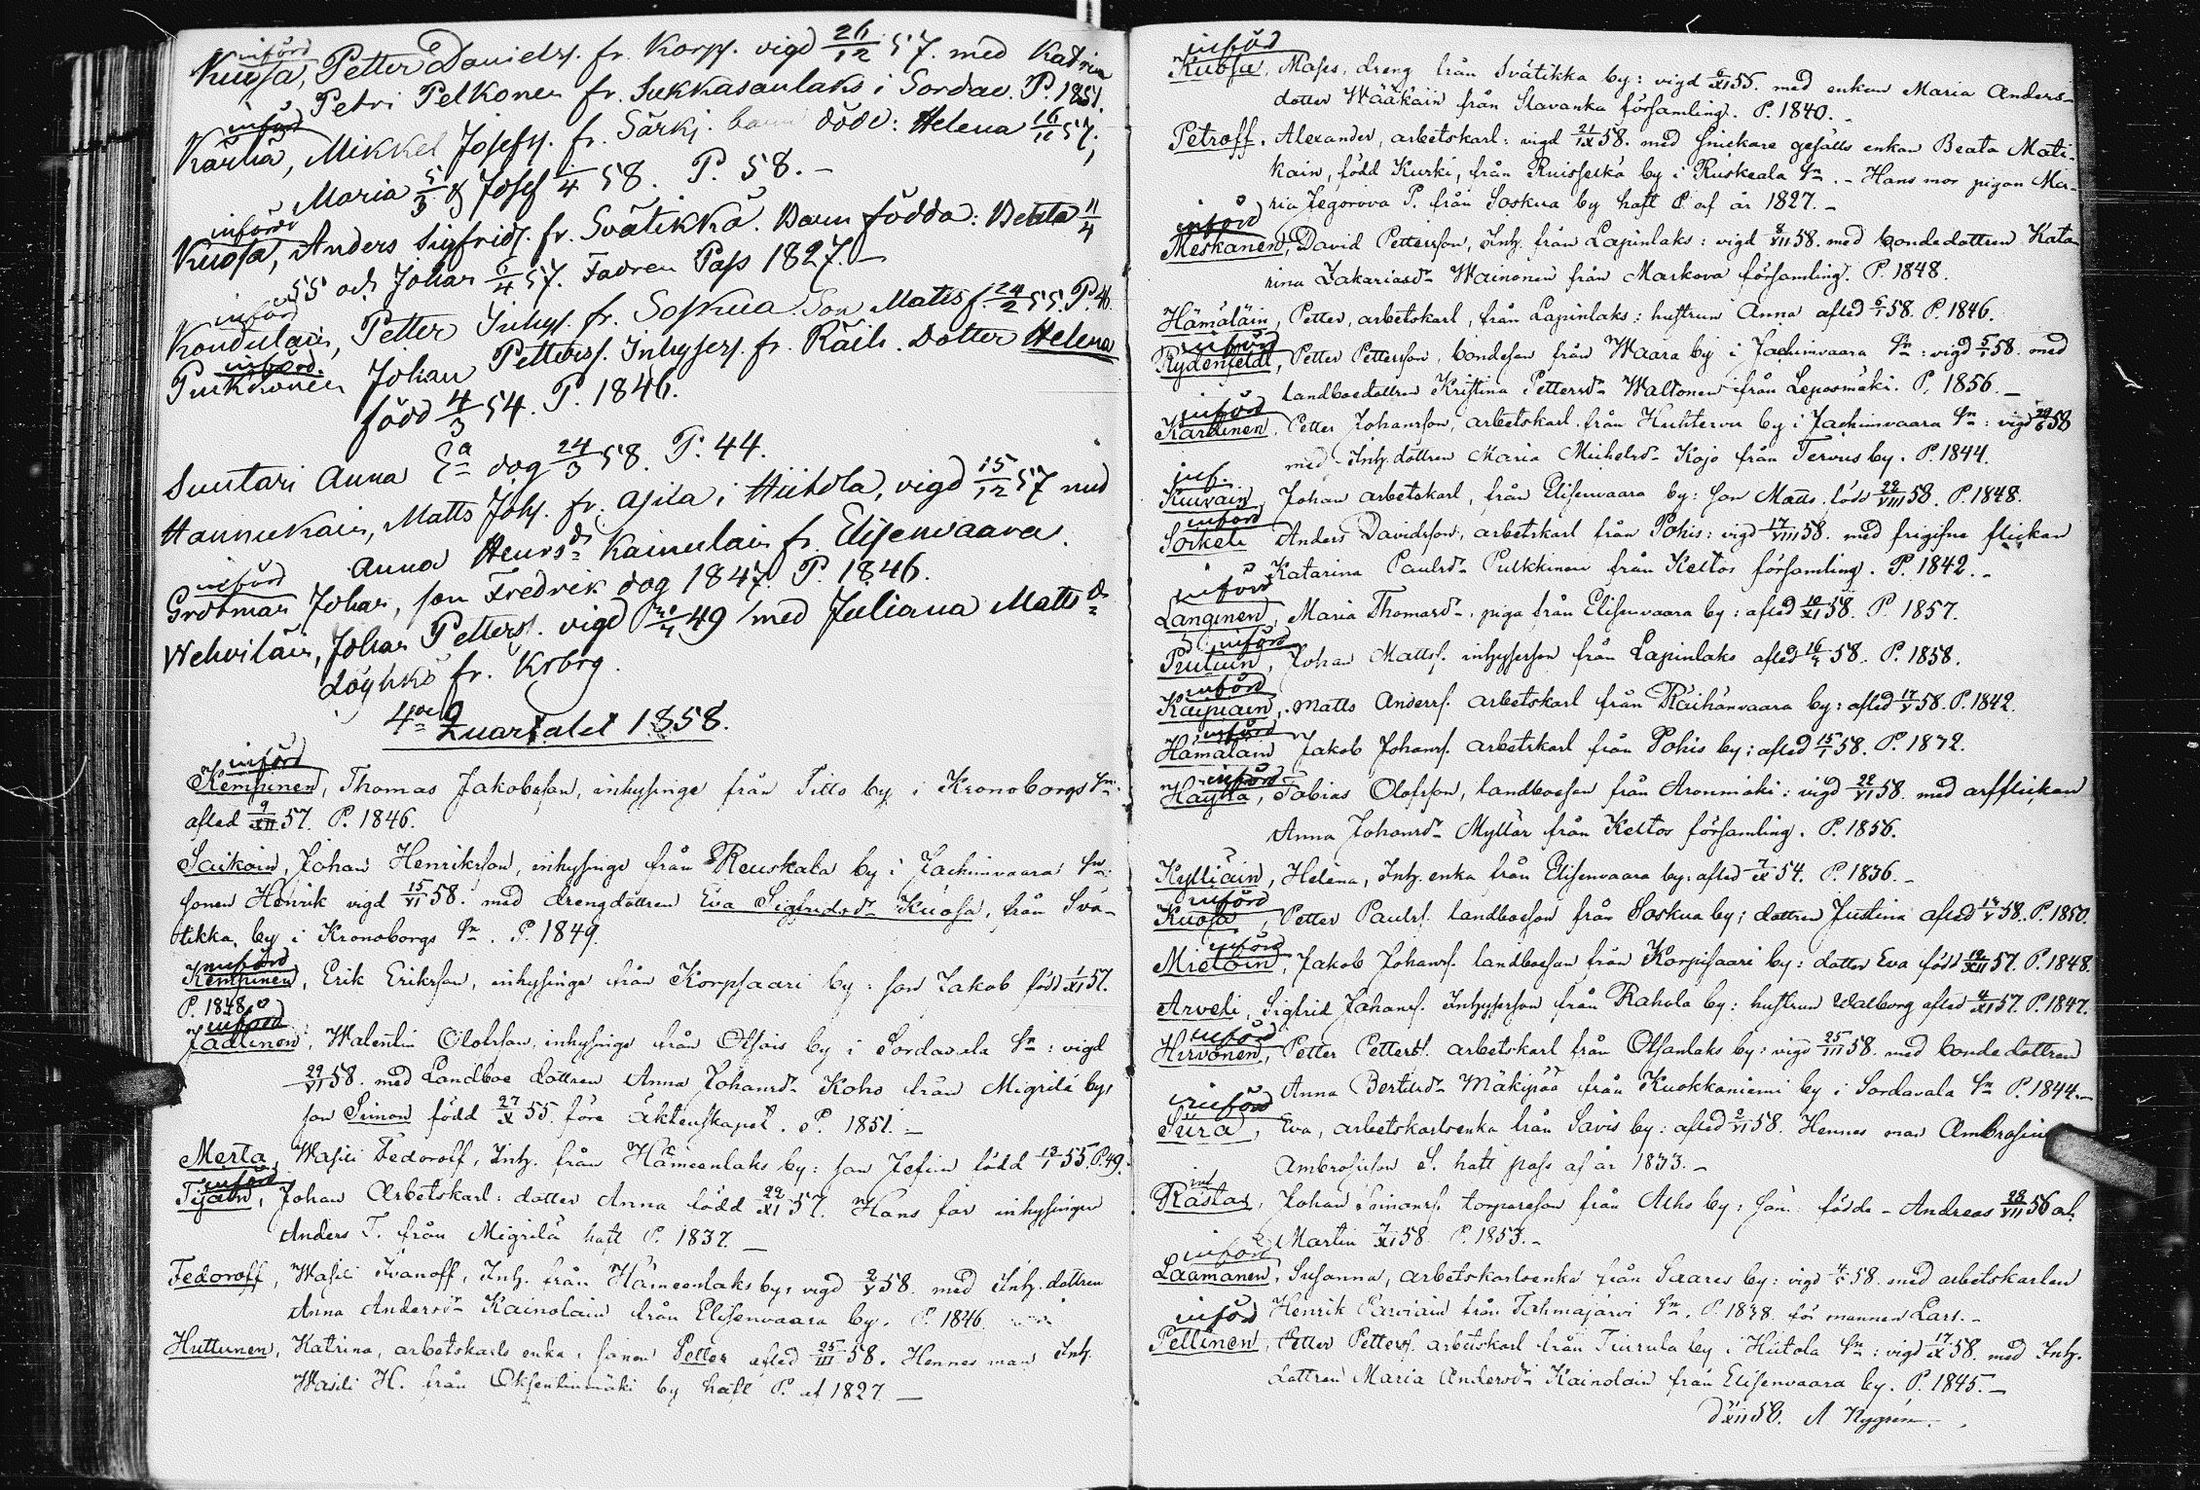 införd
Kuosa, Petter Daniels. fr. Korps. vigd 26/12 57. med Katrina
Petri Pelkonen fr. Sukkasanlaks i Sordav. P. 1851.
införd
Mikkel Josefs. fr. Särkj. barn döde: Helena 16/11 57,
Maria 5/3 & Josef 1/4 58. P. 58. –
införd
Kuosa, Anders Sigfrids. fr. Svätikkä. Barn födda: Beata 11/4
55 och Johan 6/4 57. Fadren Pass 1827. –
införd
Petter Inhys. fr. Soskua. Son Matts f 24/2 55. P. 46.
införd.
Purkkonen Johan Petterss. Inhysers. fr. Räih. Dotter Helena
född 4/3 54. P. 1846.
Suntari Anna Ea dog 24/3 58. P. 44.
Hannukain, Matts Johs. fr. Asila i Hiitola, vigd 15/12 57 med
Anna Henrsdr Kainulain fr. Elisenvaara.
införd
Grotman Johan, son Fredrik dog 1847. P. 1846.
Wehviläin, Johan Petters. vigd 49 med Juliana Mattsdr
fr. Krbrg.
4de Quartalet 1858.
införd
Kempinen, Thomas Jakobsson, inhysinge från Tillo by i Kronoborgs Sn:
afled 9/XII 57. P. 1846.
Saikoin, Johan Henriksson, inhysinge från Reuskala by i Jachimvaara Sn:
sonen Henrik vigd 15/VI 58. med drengdottren Eva Sigfridsdr Kuosa, från Svä-
tikka by i Kronoborgs Sn. P. 1849.
införd
Kempinen, Erik Eriksson, inhysinge från Korpsaari by: son Jakob född 1/XI 57.
P. 1848.
införd
Walentin Olofsson, inhysinge från Otsois by i Sordavala Sn: vigd
29/VI 58. med Landboe dottren Anna Johansdr Koho från Migrilä by,
son Simon född 27/X 55. före äktenskapet. P. 1851. –
Merta, Wasili Fedoroff, Inh. från Hämeenlaks by: son Jefim född 13/I 55. P. 49.
införd
Tijain, Johan Arbetskarl: dotter Anna född 22/XI 57. Hans far inhysingen
Anders T. från Migrilä haft P. 1837. –
Fedoroff, Wasili Ivanoff, Inh. från Hämeenlaks by, vigd 2/V 58. med Inh. dottren
Anna Andersdr Kainolain från Elisenvaara by. P. 1846.
Huttunen, Katrina, arbetskarls enka, sonen Petter afled 25/III 58. Hennes man Inh.
Wasili H. från Oksentinmäki by haft P. af 1827 –
införd
Kuosa, Mats, dreng från Svätikka by: vigd 6/XI 55. med enkan Maria Anders-
dotter Wääkäin från Slavanka församling. P. 1840. –
Petroff, Alexander, arbetskarl: vigd 21/IX 58. med snickare gesälls enkan Beata Mati-
kain, född Kurki, från Ruisselkä by i Ruskeala Sn. – Hans mor pigan Ma-
ria Jegorova P. från Soskua by haft P. af år 1827. –
införd
Meskanen, David Pettersson, Inh. från Lapinlaks: vigd 8/VII 58. med bondedottren Kata-
rina Zakariasdr Wainonen från Markova församling. P. 1848.
Hämäläin, Petter, arbetskarl, från Lapinlaks: hustrun Anna afled 6/I 58. P. 1846.
införd
Rydenfeldt, Petter Pettersson, bondeson från Waara by i Jachimvaara Sn: vigd 5/I 58. med
landboedottren Kristina Pettersdr Waltonen från Leposmäki. P. 1856. –
införd
Karttinen, Petter Johansson, arbetskarl från Kuhtervu by i Jachimvaara Sn: vigd 29/6 58
med Inh. dottren Maria Michelsdr Kojo från Tervus by. P. 1844.
inf.
Kuivain, Johan arbetskarl, från Elisenvaara by: son Matts född 22/VIII 58. P. 1848.
införd
Sorkeli Anders Davidsson, arbetskarl från Pohis: vigd 17/VIII 58. med frigifna flickan
Katarina Paulsdr Pulkkinen från Keltos församling. P. 1842. –
införd
Langinen, Maria Thomasdr, piga från Elisenvaara by: afled 10/XI 58. P. 1857.
införd
Johan Mattss. inhysesson från Lapinlaks afled 58. P. 1858.
införd
Kaipiain, Matts Anderss. arbetskarl från Räihänvaara by: afled 17/V 58. P. 1842.
införd
Hämäläin Jakob Johanss. arbetskarl från Pohis by: afled 15/I 58. P. 1832.
införd
Tobias Olofsson, landboeson från Aronmäki: vigd 22/VI 58. med arfflickan
Anna Johansdr Myllär från Keltos församling. P. 1856.
Kylliäin, Helena, Inh. enka från Elisenvaara by: afled 7/IX 54. P. 1836. –
införd
Kuosa, Petter Paulss. landboeson från Soskua by; dottren Justina afled 58. P. 1850.
införd
Mietoin, Jakob Johanss. landboeson från Korpisaari by: dotter Eva född 12/XII 57. P. 1848.
Arveli, Sigfrid Johanss. Inhysesson från Rahola by: hustrun Walborg afled 4/XI 57. P. 1847.
införd
Hirvonen, Petter Petterss. arbetskarl från Otsanlaks by: vigd 25/III 58. med bondedottren
Anna Bertilsdr Mäkipää från Kuokkaniemi by i Sordavala Sn P. 1844. –
införd
Siira, Eva, arbetskarlsenka från Savis by: afled 2/VI 58. Hennes man Ambrosius
Ambrosisson S. haft pass af år 1833. –
inf
Rastas, Johan Simonss. torpareson från Alho by; födde – Andreas 28/VII 56 och
Martin 7/XI 58. P. 1853. –
införd
Laamanen, Susanna, arbetskarlsenka från Saares by: vigd 58. med arbetskarlen
Henrik Parviain från Tohmajärvi Sn. P. 1838 för mannen Lars. –
införd
Pellinen, Petter Petterss. arbetskarl från Tiurula by i Hiitola Sn: vigd 17/IX 58. med Inh.
dottren Maria Andersdr Kainolain från Elisenvaara by. P. 1845. –
XII 58. A Nygrén.